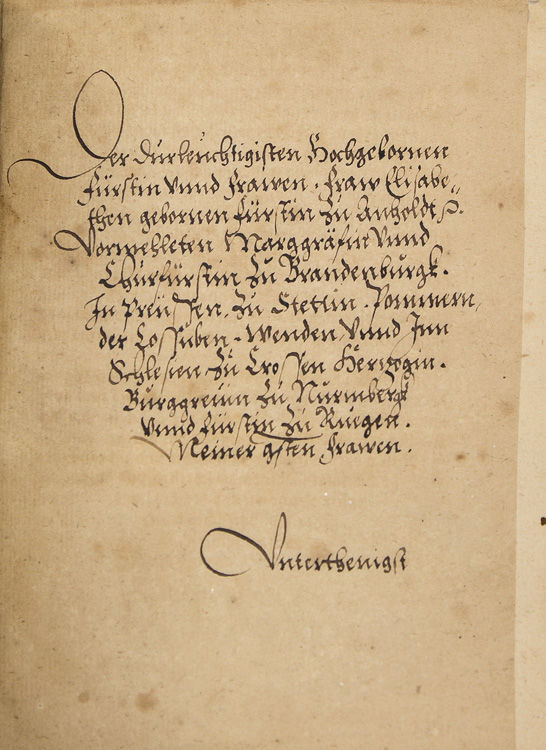 Der Durleuchtigisten Hochgebornen
Fürstin vnnd Frawen. Fraw Elisabe„
then gebornen Fürstin zu Anholdt ꝛc.
Vormehleten Marggräfin vnnd
Churfürstin zu Brandenburgk.
In Preüssen, zu Stettin. Pommern,
der Cossuben. Wenden, vnnd Inn
Schlesien zu Crossen Hertzogin.
Burggreuin zu Nurmbergk
vnnd Fürstin zu Ruegen.
Meiner gsten Frawen.
Vnterthenigst